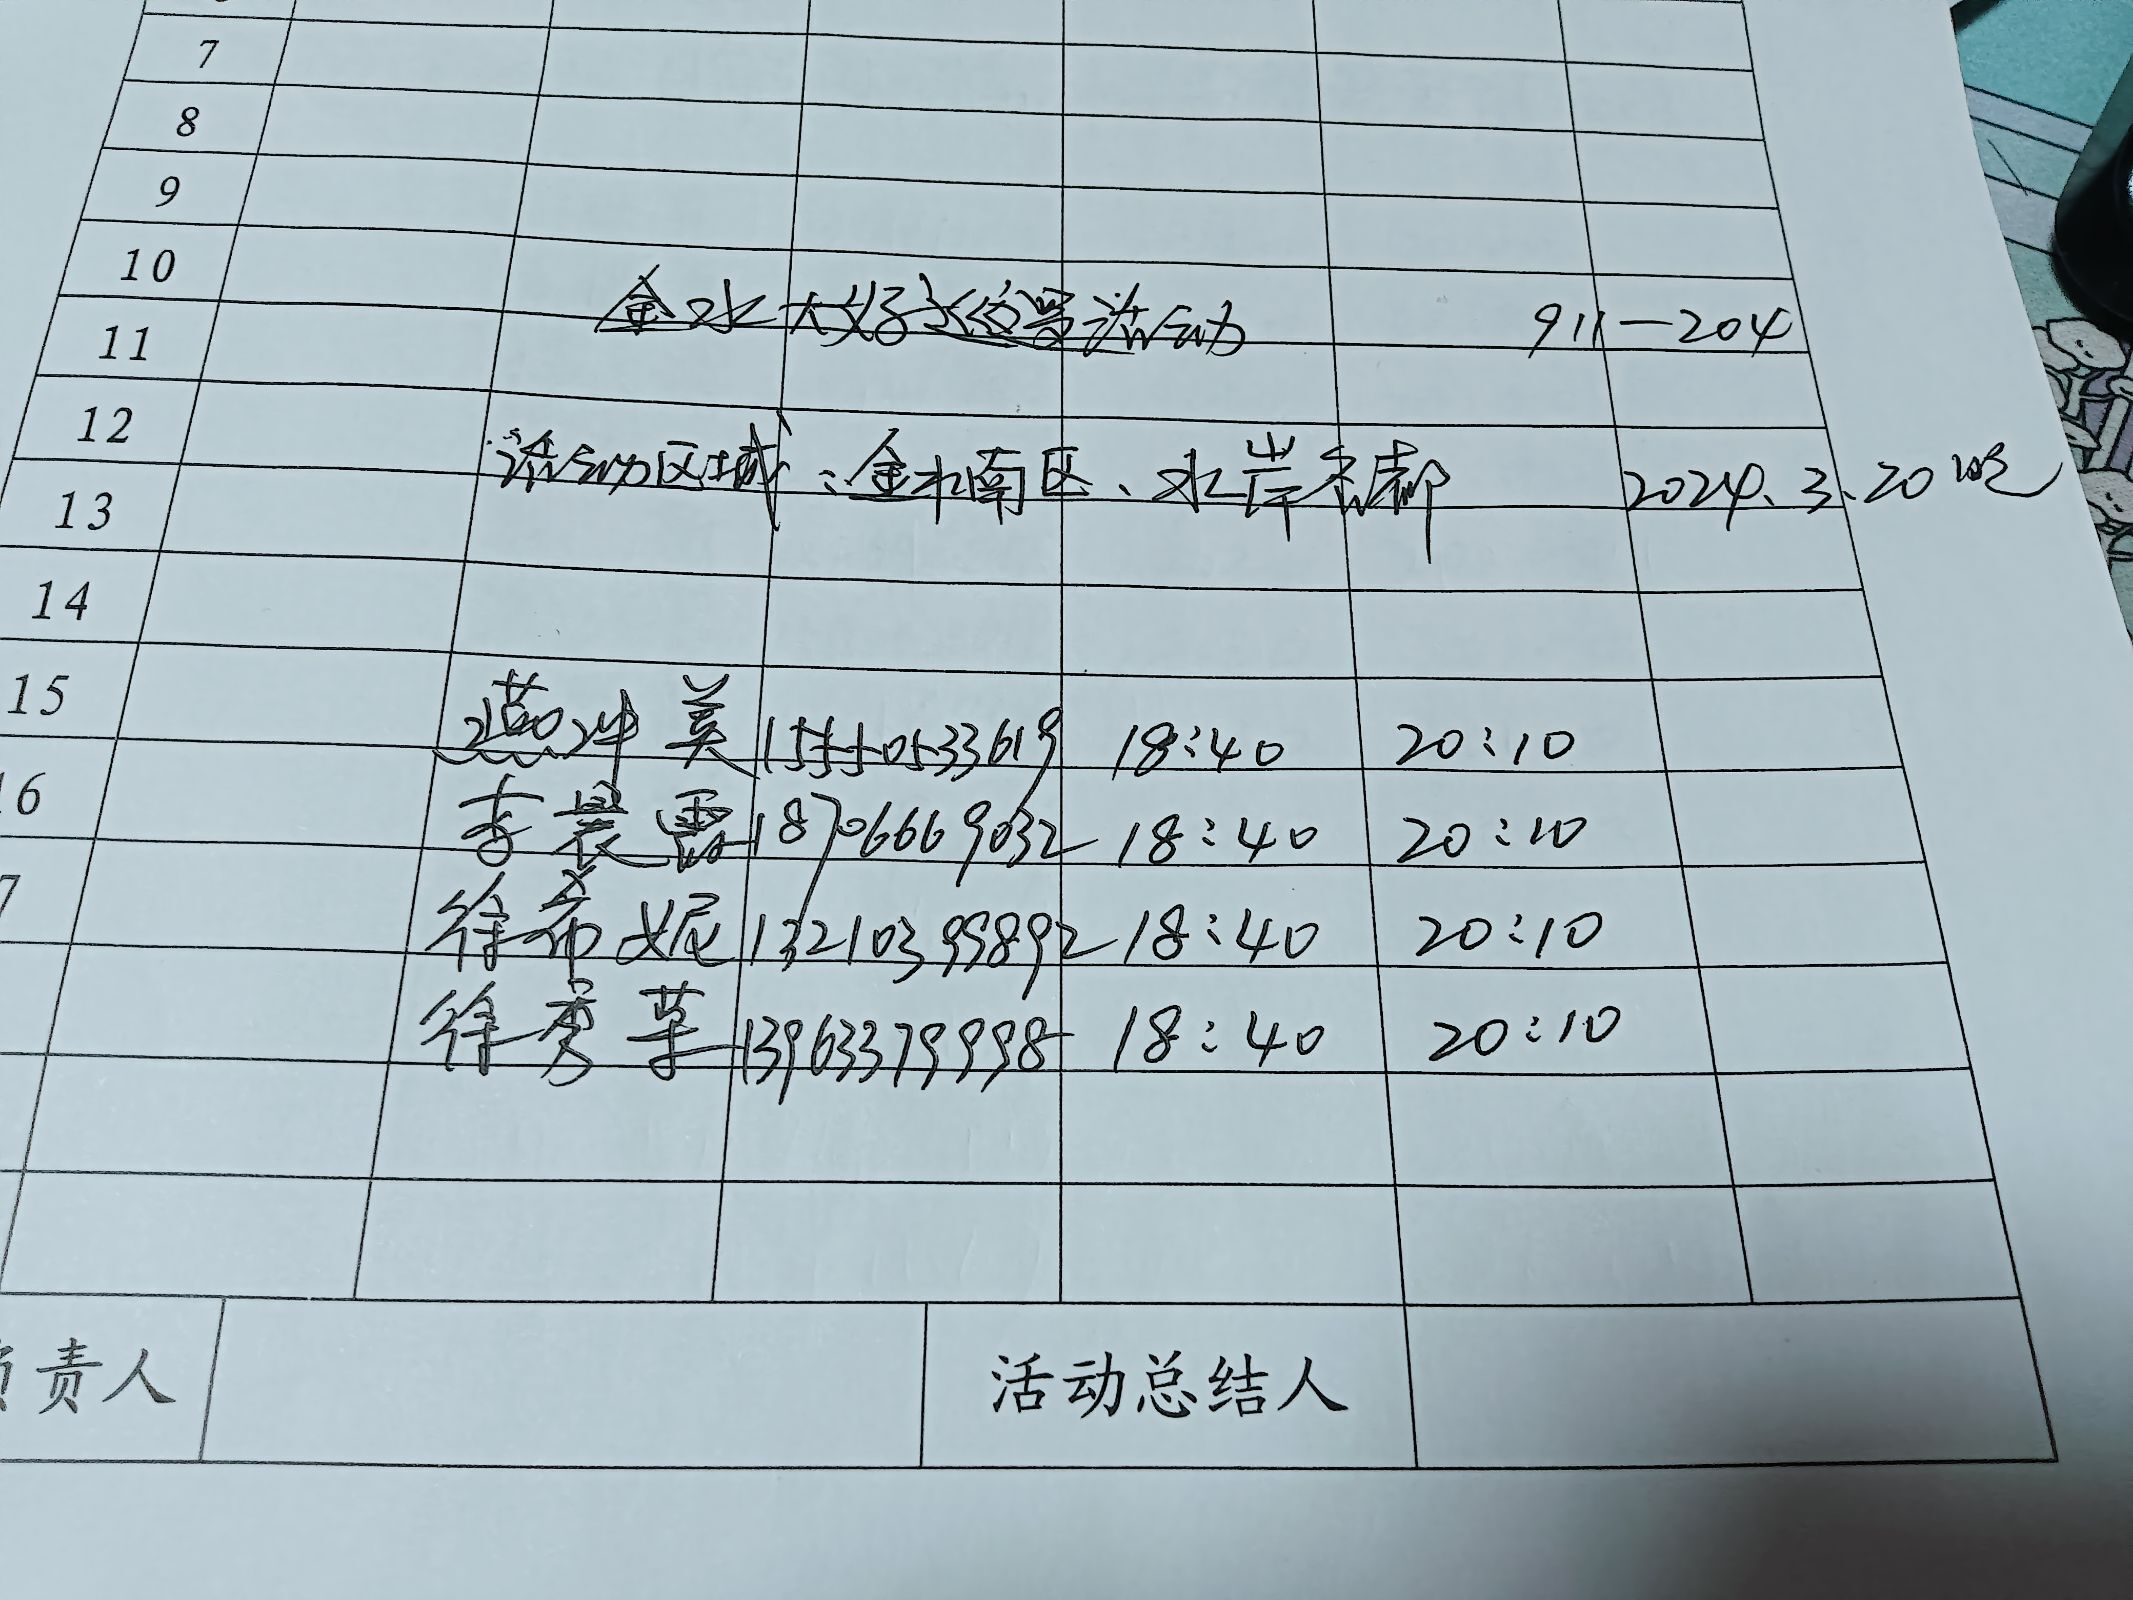 7
8
9
10
金水大好 活动 911—204
11
12
活动区域:金水南区、水岸 都 2024.3.20晚
13
14
15
美 15550533619 18:40 20:10
16
李晨霞 18706669032 18:40 20:10
7
徐希妮 13210399892 18:40 20:10
徐秀草 13963379998 18:40 20:10
负责人 活动总结人